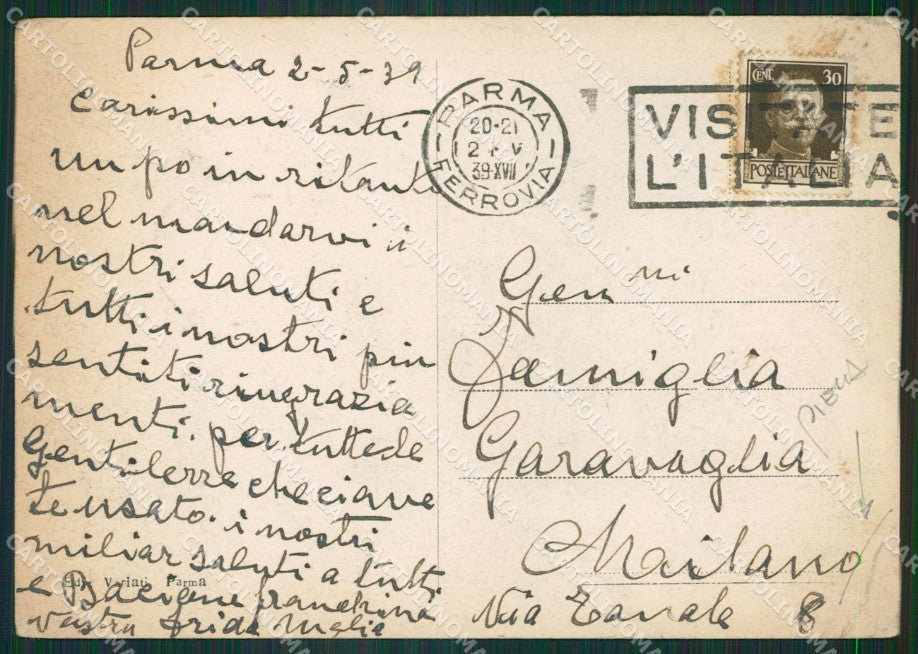 Parma 2-5-39
Carissimi tutti
un po in ritardo
nel mandarvi i
nostri saluti e
tutti i nostri piu
sentiti ringrazia
menti. per tutte le
gentilezze che ci ave
te usato. i nostri
miliar saluti a tutti
e Bacione franchina
vostra Frida
Edit. Variati, Parma
PARMA
FERROVIA
20-21
2 V
39·XVII
VISITATE
L'ITALIA
CENT. 30
POSTE ITALIANE
Gen mi
Famiglia
Garavaglia
Milano
Via Canale 8
CARTOLINOMANIA